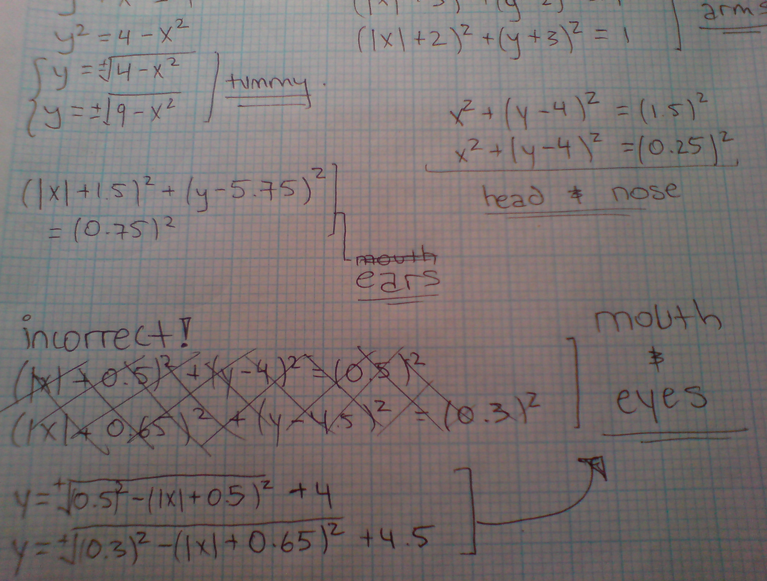 y² = 4 - x²
(|x|+2)² + (y+3)² = 1
arms
y = ±√4-x²
y = ±√9-x²
tummy.
x² + (y-4)² = (1.5)²
x² + (y-4)² = (0.25)²
head & nose
(|x|+1.5)² + (y-5.75)²
= (0.75)²
mouth
ears
incorrect!
(|x| + 0.5)² + (y-4)² = (0.5)²
(|x| + 0.65)² + (y-4.5)² = (0.3)²
mouth
&
eyes
y = ±√0.5² - (|x|+0.5)² + 4
y = ±√(0.3)² - (|x| + 0.65)² + 4.5